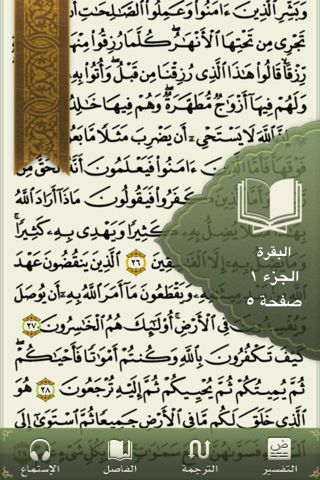 وَبَشِّرِ ٱلَّذِينَ ءَامَنُوا۟ وَعَمِلُوا۟ ٱلصَّـٰلِحَـٰتِ
تَجْرِى مِن تَحْتِهَا ٱلْأَنْهَـٰرُ ۖ كُلَّمَا رُزِقُوا۟ مِنْهَا
رِّزْقًا ۙ قَالُوا۟ هَـٰذَا ٱلَّذِى رُزِقْنَا مِن قَبْلُ ۖ وَأُتُوا۟ بِهِۦ
وَلَهُمْ فِيهَآ أَزْوَٰجٌ مُّطَهَّرَةٌ ۖ وَهُمْ فِيهَا
إِنَّ ٱللَّهَ لَا يَسْتَحْىِۦٓ أَن يَضْرِبَ مَثَلًا مَّا
فَوْقَهَا ۚ فَأَمَّا ٱلَّذِينَ ءَامَنُوا۟ فَيَعْلَمُونَ أَنَّهُ ٱلْحَقُّ مِن
كَفَرُوا۟ فَيَقُولُونَ مَاذَآ أَرَادَ ٱللَّهُ
يُضِلُّ بِهِۦ كَثِيرًا وَيَهْدِى بِهِۦ كَثِيرًا ۚ
٢٦ ٱلَّذِينَ يَنقُضُونَ عَهْدَ
وَيَقْطَعُونَ مَآ أَمَرَ ٱللَّهُ بِهِۦٓ أَن يُوصَلَ
وَيُفْسِدُونَ فِى ٱلْأَرْضِ ۚ أُو۟لَـٰٓئِكَ هُمُ ٱلْخَـٰسِرُونَ ٢٧
كَيْفَ تَكْفُرُونَ بِٱللَّهِ وَكُنتُمْ أَمْوَٰتًا فَأَحْيَـٰكُمْ ۖ
ثُمَّ يُمِيتُكُمْ ثُمَّ يُحْيِيكُمْ ثُمَّ إِلَيْهِ تُرْجَعُونَ ٢٨ هُوَ
ٱلَّذِى خَلَقَ لَكُم مَّا فِى ٱلْأَرْضِ جَمِيعًا ثُمَّ ٱسْتَوَىٰٓ إِلَى
البقرة
الجزء ١
صفحة ٥
التفسير
الترجمة
الفاصل
الإستماع